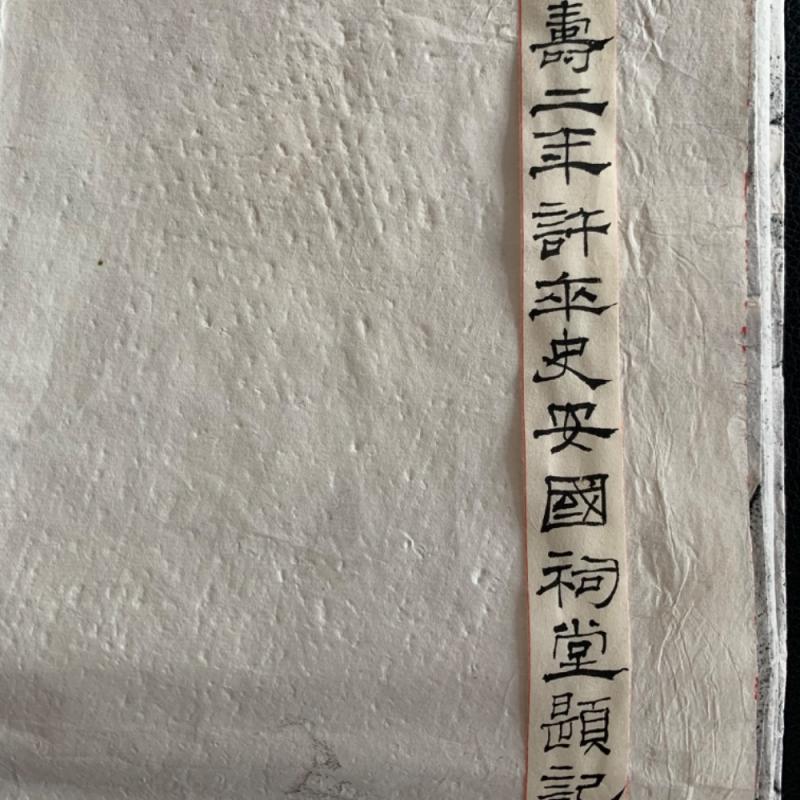 壽二年許卒史安國祠堂題記